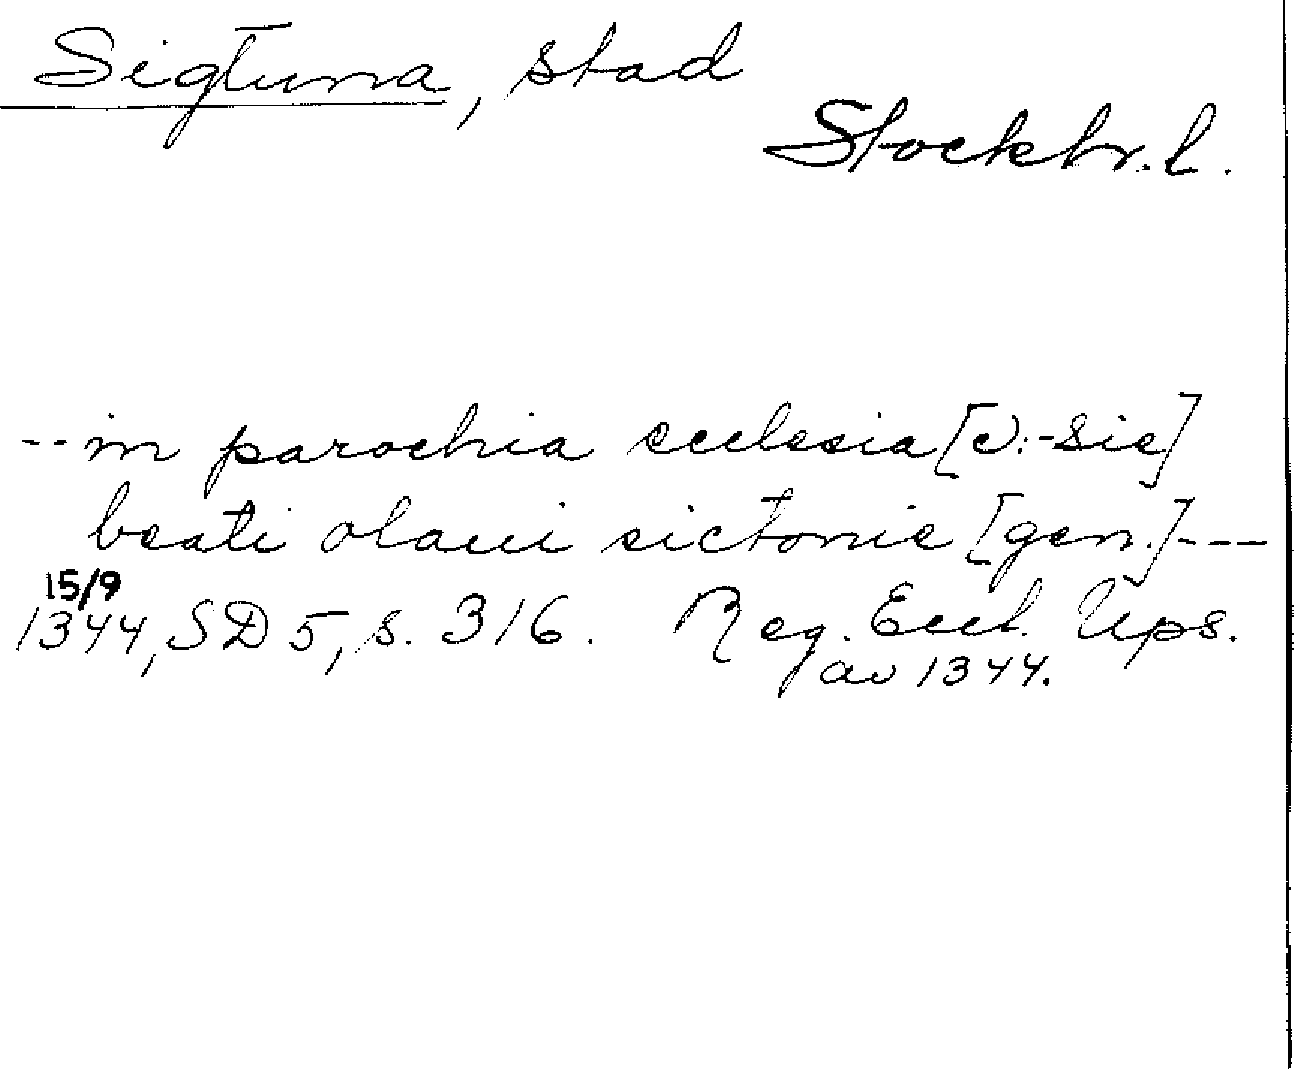 Sigtuna, stad
Stockh.l.
-- in parochia ecclesia [ɔ: -sie]
beati olaui sictonie [gen.] ---
15/9
1344, SD 5, s. 316. Reg. Eccl. Ups.
av 1344.